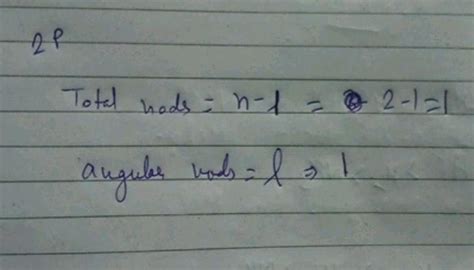 2P
Total nods = n-1 = 2-1=1
angular nods = l ⇒ 1